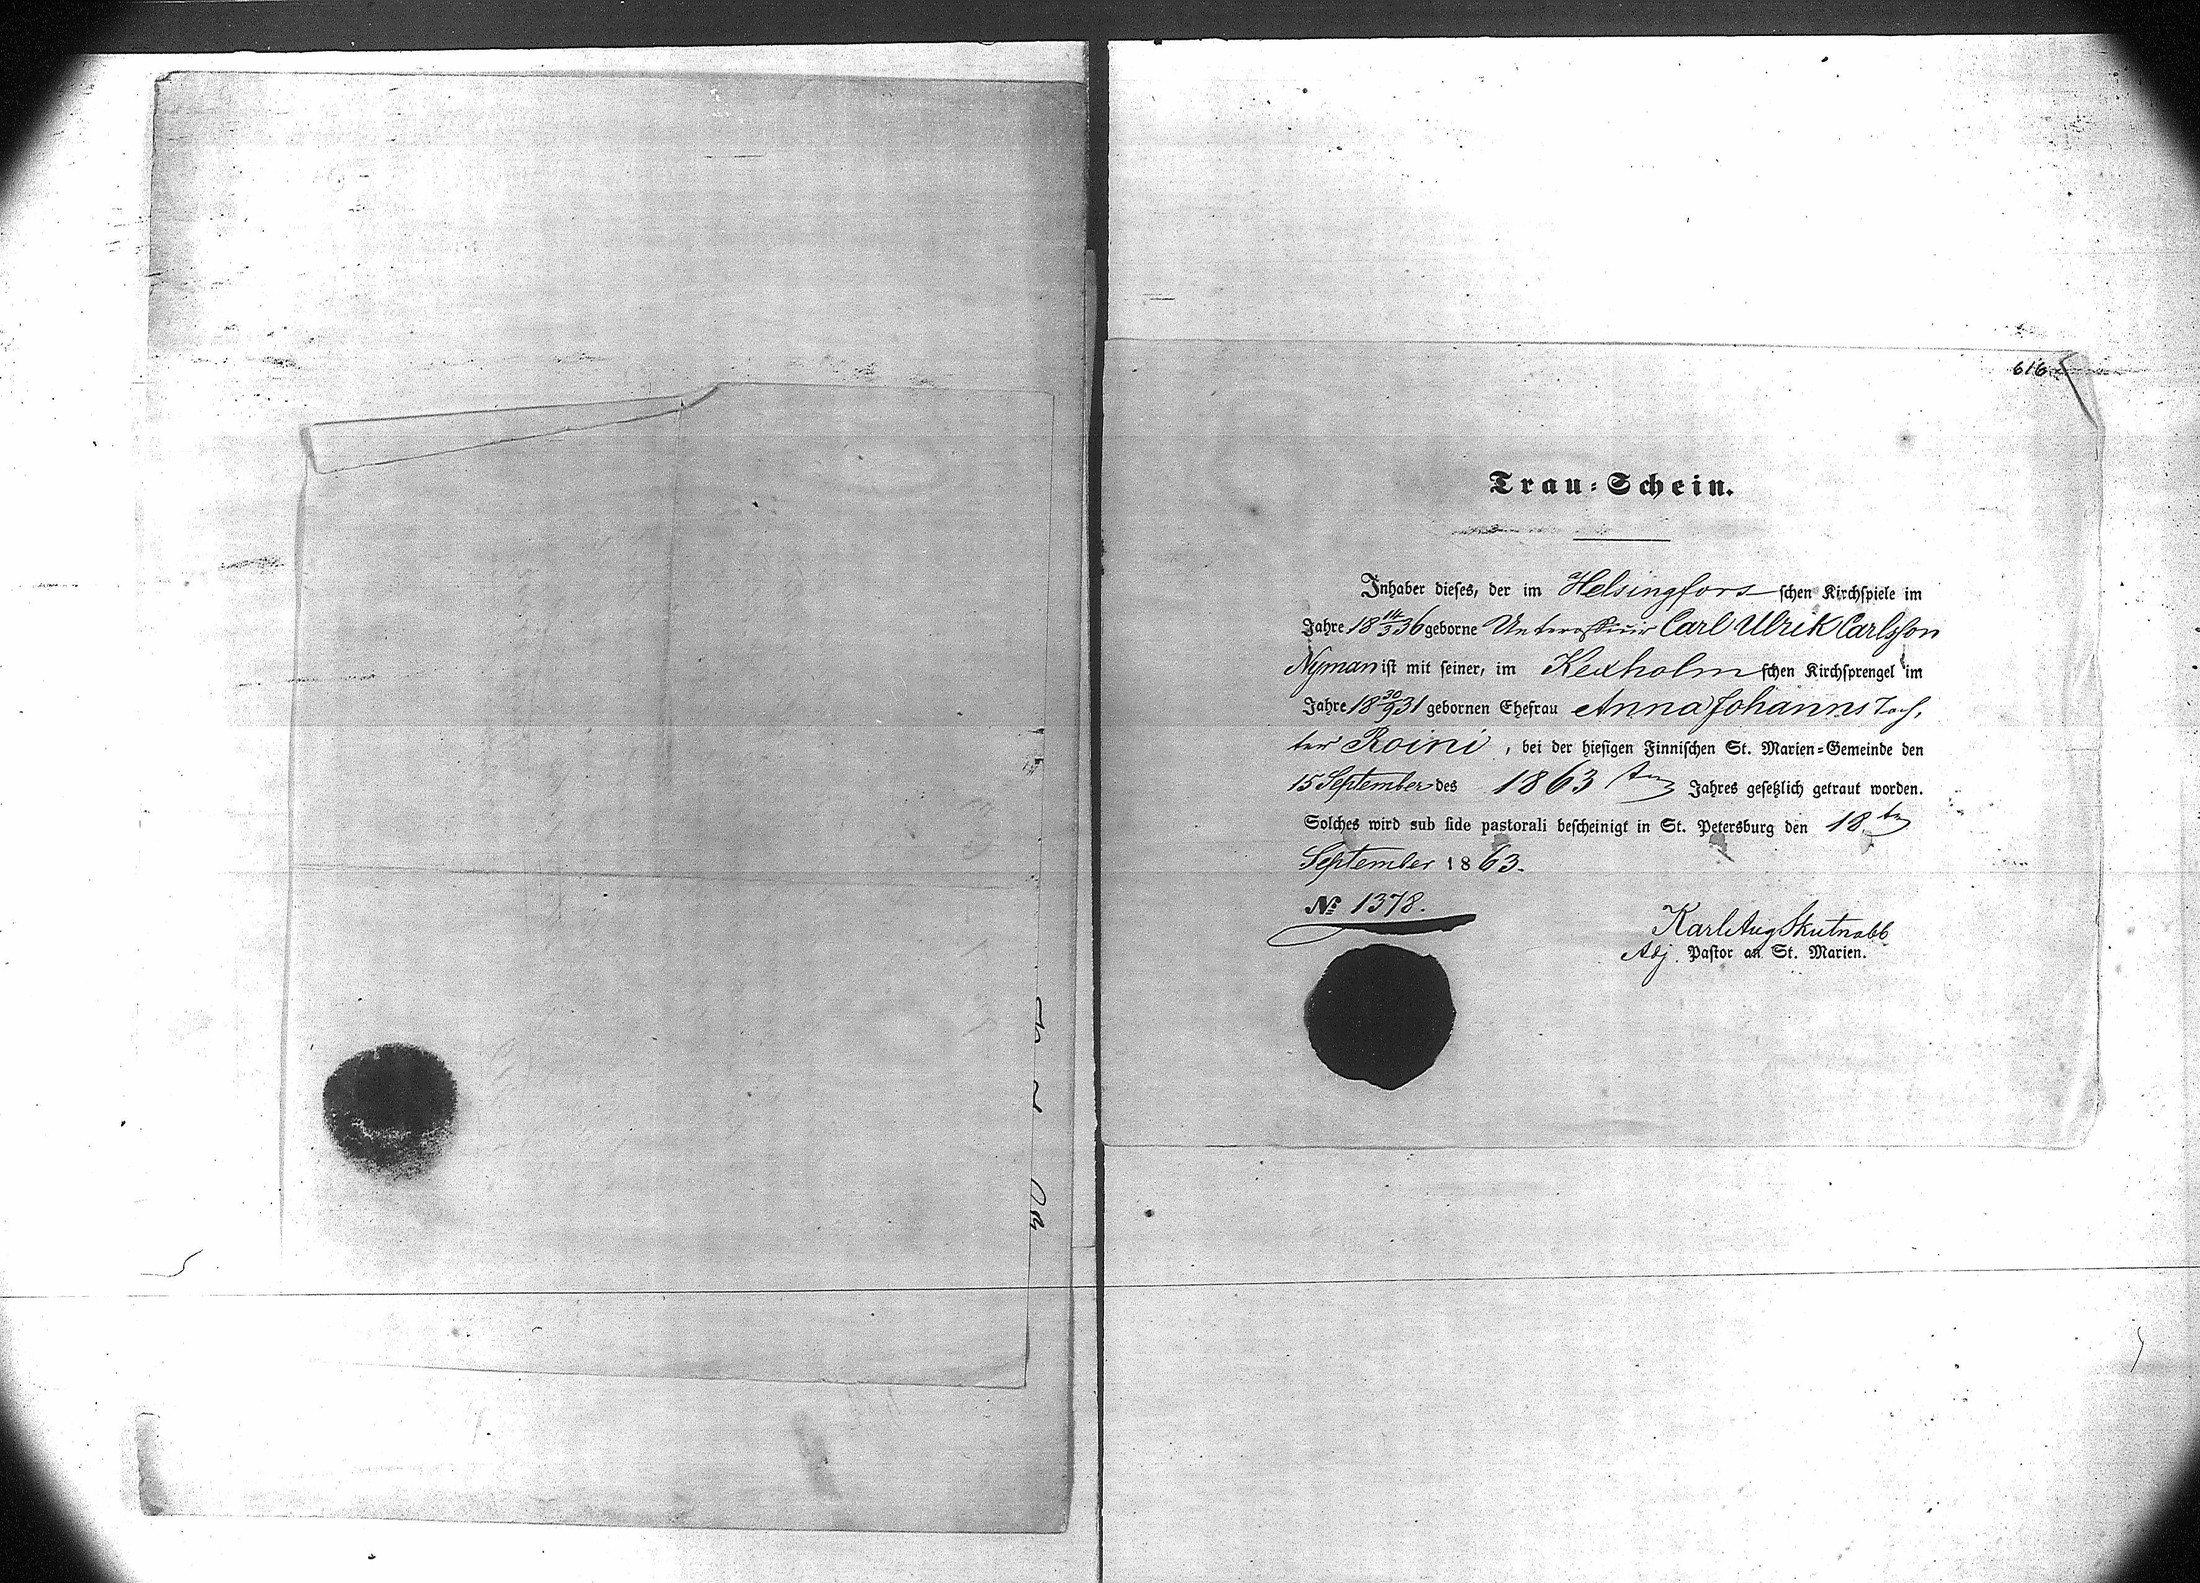 616
Trau-Schein.
Inhaber dieses, der im Helsingfors schen Kirchspiele im
Jahre 18 14/3 36 geborne Carl Ulrik Carlsson
Nyman ist mit seiner, im Kexholm schen Kirchsprengel im
Jahre 18 30/9 31 gebornen Ehefrau Anna Johanns Toch,
ter Roini, bei der hiesigen Finnischen St. Marien-Gemeinde den
15 September des 1863 ten Jahres gesetzlich getraut worden.
Solches wird sub fide pastorali bescheinigt in St. Petersburg den 18 ten
September 1863.
№ 1378.
Karl Aug Skutnabb
Adj. Pastor an St. Marien.